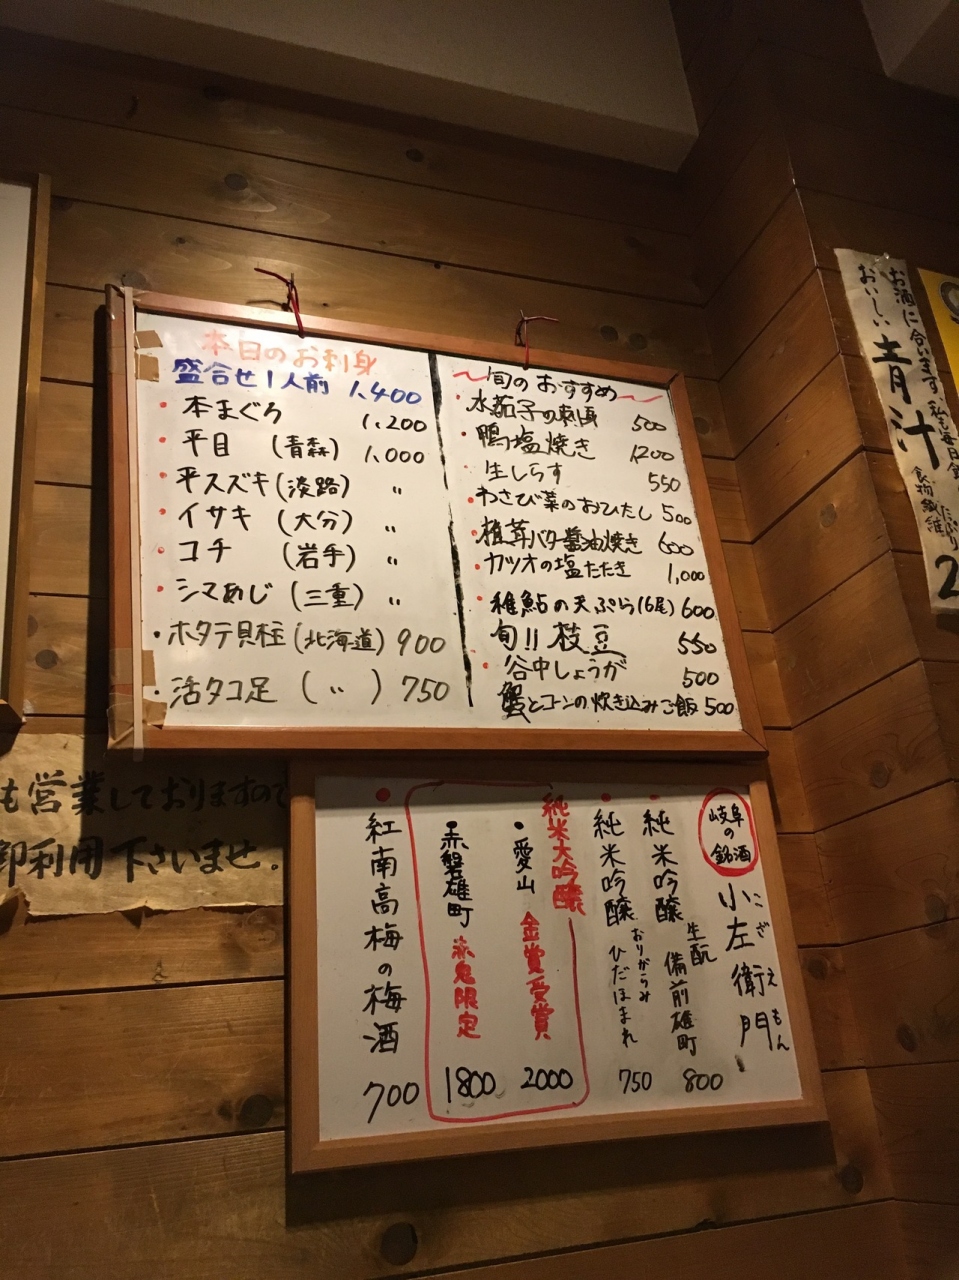 本日のお刺身
盛合せ1人前 1,400
・本まぐろ 1,200
・平目 (青森) 1,000
・平スズキ(淡路) 〃
・イサキ (大分) 〃
・コチ (岩手) 〃
・シマあじ (三重) 〃
・ホタテ貝柱(北海道) 900
・活タコ足 ( 〃 ) 750
〜旬のおすすめ〜
・水茄子の刺身 500
・鴨塩焼き 1200
・生しらす 550
・わさび菜のおひたし 500
・椎茸バター醤油焼き 600
・カツオの塩たたき 1,000
稚鮎の天ぷら(6尾) 600
旬!! 枝豆 550
・谷中しょうが 500
蟹とコーンの炊き込みご飯 500
岐阜の銘酒
小左衛門
こざえもん
・純米吟醸 生酛 備前雄町 800
・純米吟醸 おりがらみ ひだほまれ 750
純米大吟醸
・愛山 金賞受賞 2000
・赤磐雄町 赤鬼限定 1800
・紅南高梅の梅酒 700
も営業しておりますので
御利用下さいませ。
お酒に合います
おいしい青汁
私も毎日
食物繊維
2